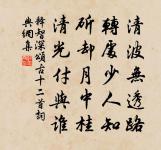 清波無透路
轉處少人知
斫却月中桂
清光付與誰
釋智深頌古十二首詞
興綱集